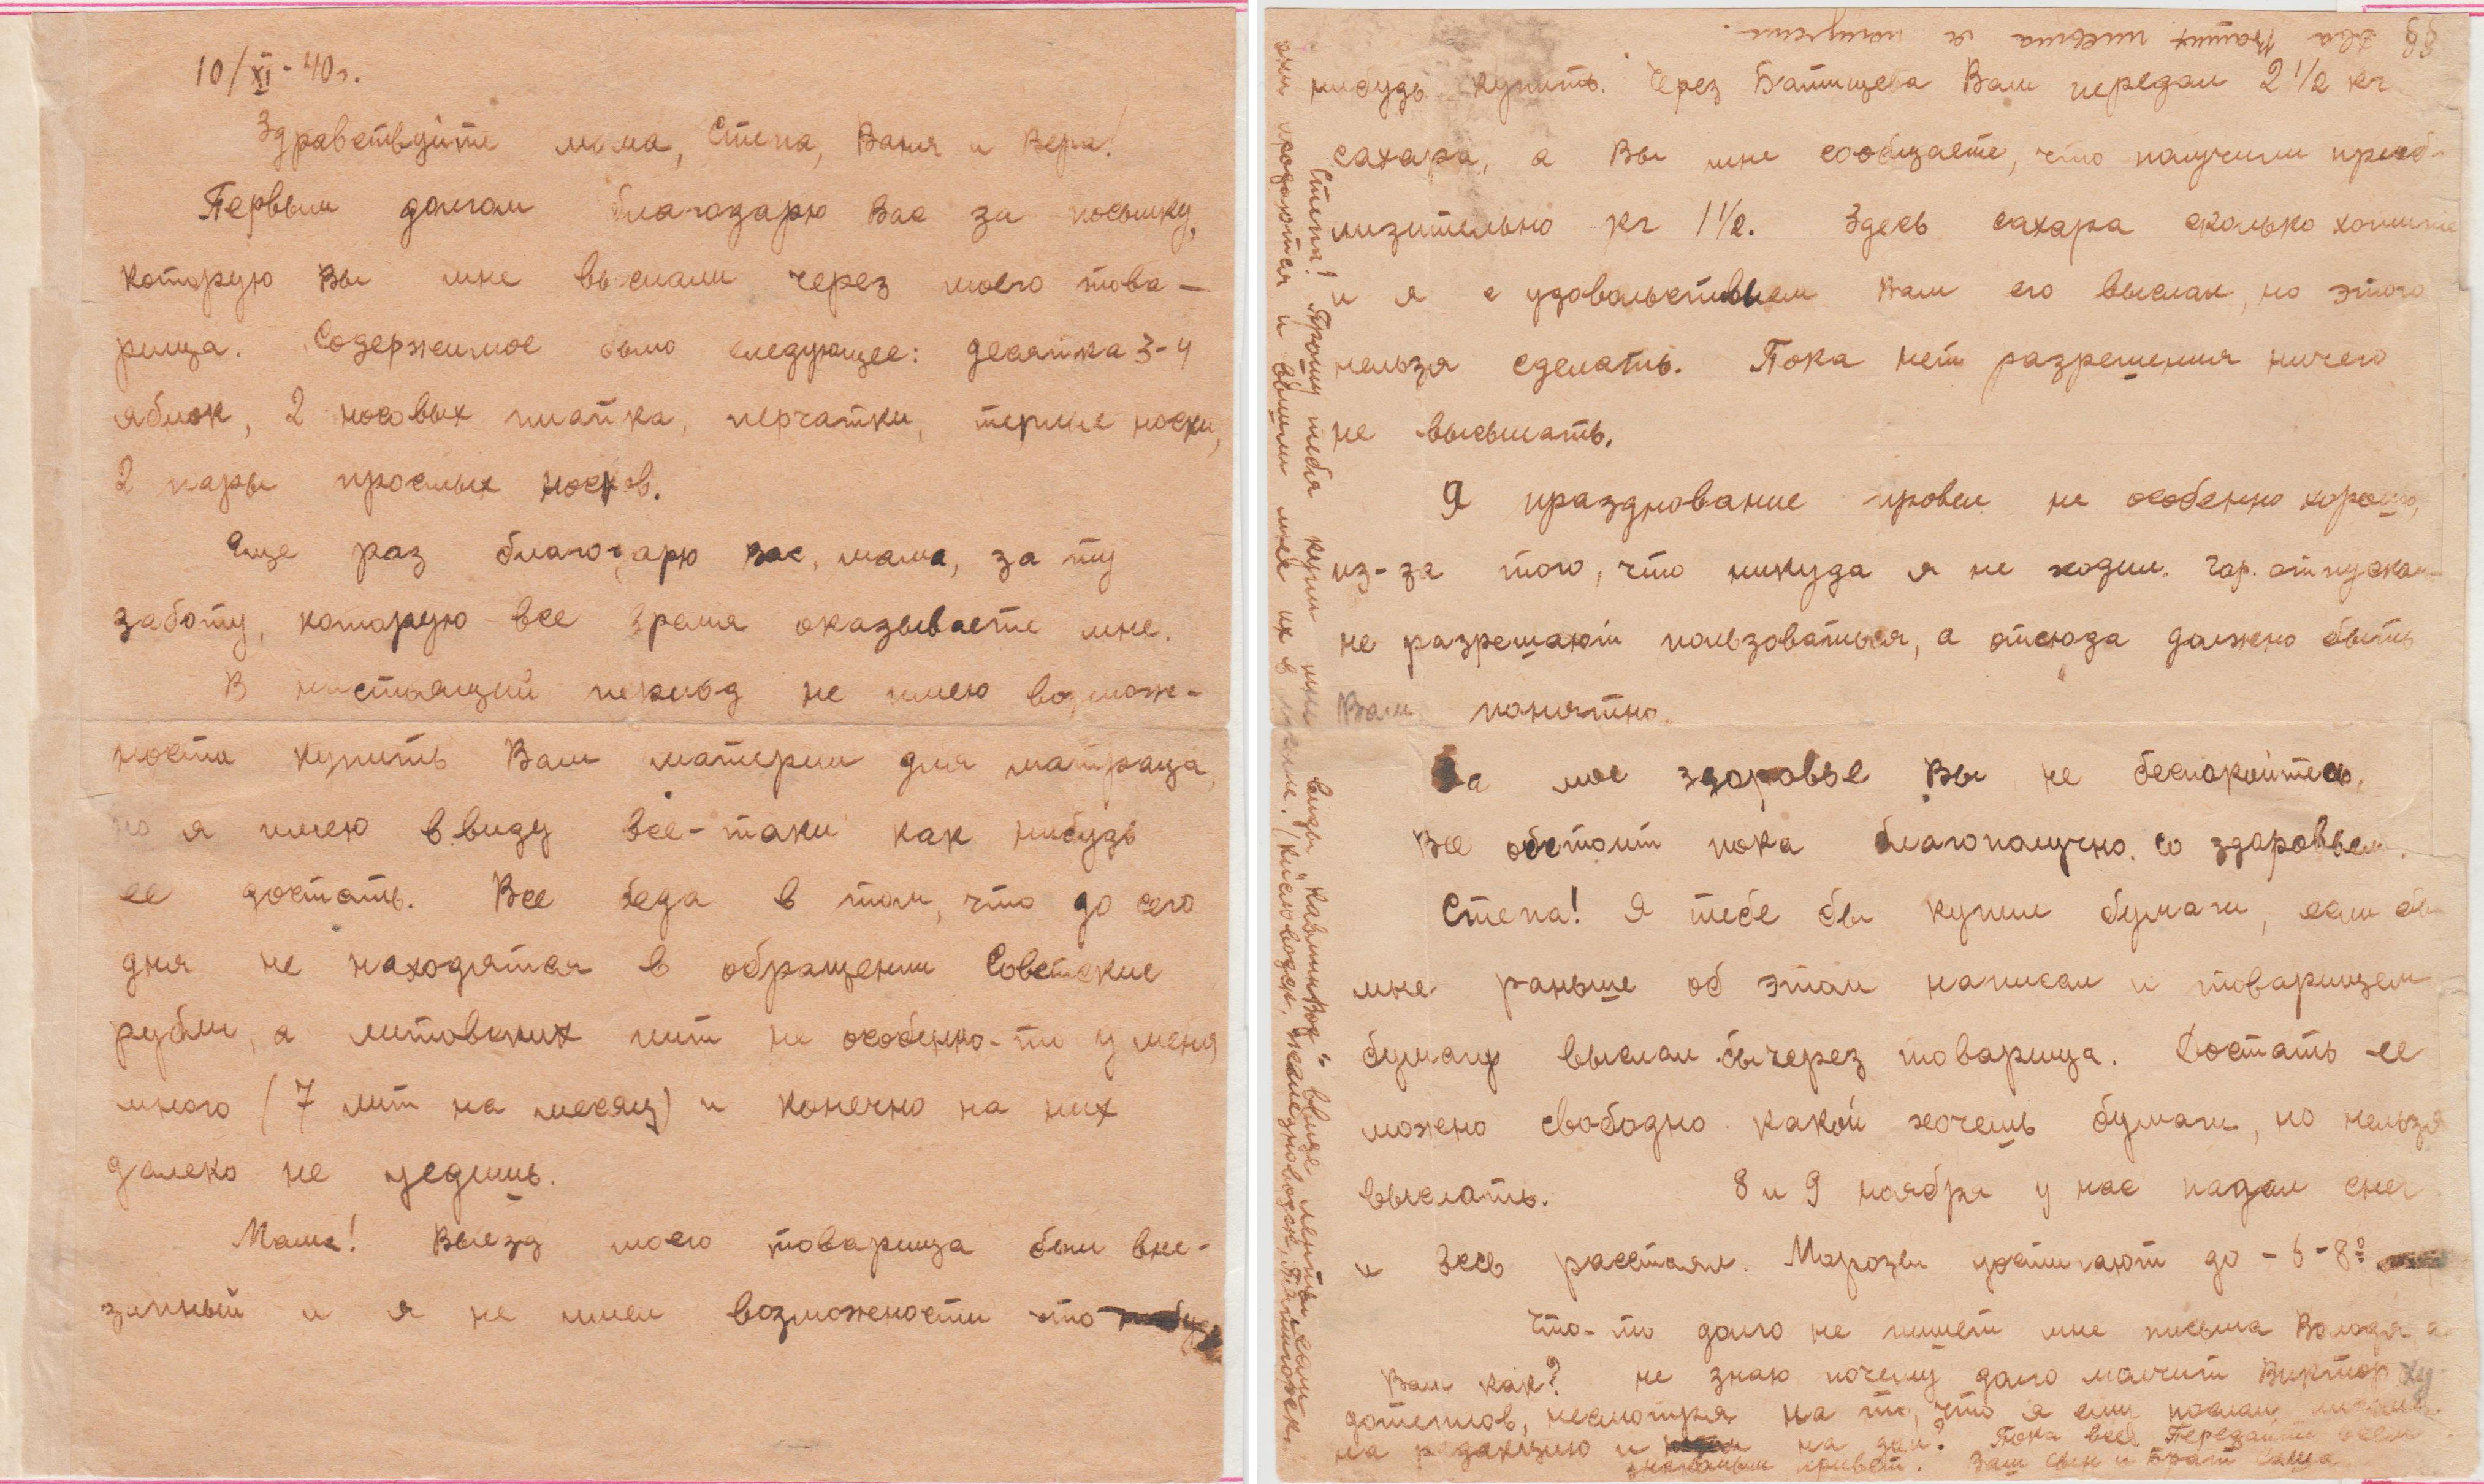 10/XI-40г.
Здравствуйте мама, Степа, Ваня и Вера!
Первым долгом благодарю Вас за посылку,
которую Вы мне выслали через моего това-
рища. Содержимое было следующее: десятка 3-4
яблок, 2 носовых платка, перчатки, теплые носки,
2 пары простых носков.
Еще раз благодарю вас, мама, за ту
заботу, которую все время оказываете мне.
В настоящий период не имею возмож-
ности купить Вам материи для матраца,
но я имею ввиду все-таки как нибудь
ее достать. Все беда в том, что до сего
дня не находятся в обращении Советские
рубли, а литовских лит не особенно-то у меня
много (7 лит на месяц) и конечно на них
далеко не уедишь.
Мама! Выезд моего товарища был вне-
запный и я не имел возможности что
два Ваших письма я получил.
нибудь купить. Через Батищева Вам передал 2 1/2 кг
сахара, а Вы мне сообщаете, что получили приб-
лизительно кг 1 1/2. Здесь сахара сколько хотите
и я с удовольствием Вам его выслал, но этого
нельзя сделать. Пока нет разрешения ничего
не высылать.
Я празднование провел не особенно хорошо,
из-за того, что никуда я не ходил. Гор. отпуска-
не разрешают пользоваться, а отсюда должно быть
Вам понятно.
За мое здоровье Вы не беспокойтесь,
Все обстоит пока благополучно со здоровьем.
Степа! Я тебе бы купил бумаги, если бы
мне раньше об этом написал и товарищем
бумагу выслал бы через товарища. Достать ее
можно свободно какой хочешь бумаги, но нельзя
выслать. 8 и 9 ноября у нас падал снег
и весь растаял. Морозы достигают до -6-8°
Что-то долго не пишет мне письма Володя а
Вам как? не знаю почему долго молчит Виктор
несмотря на то, что я ему послал
на редакцию и на дом? Пока все. Передайте всем
знакомым привет. Ваш сын и брат Саша
Степа! Прошу тебя купи мне виды "Кавминвод" ввиде ленты, если
они продаются и вышли мне их в письме. (Кисловодск, Железноводск, Пятигорск.